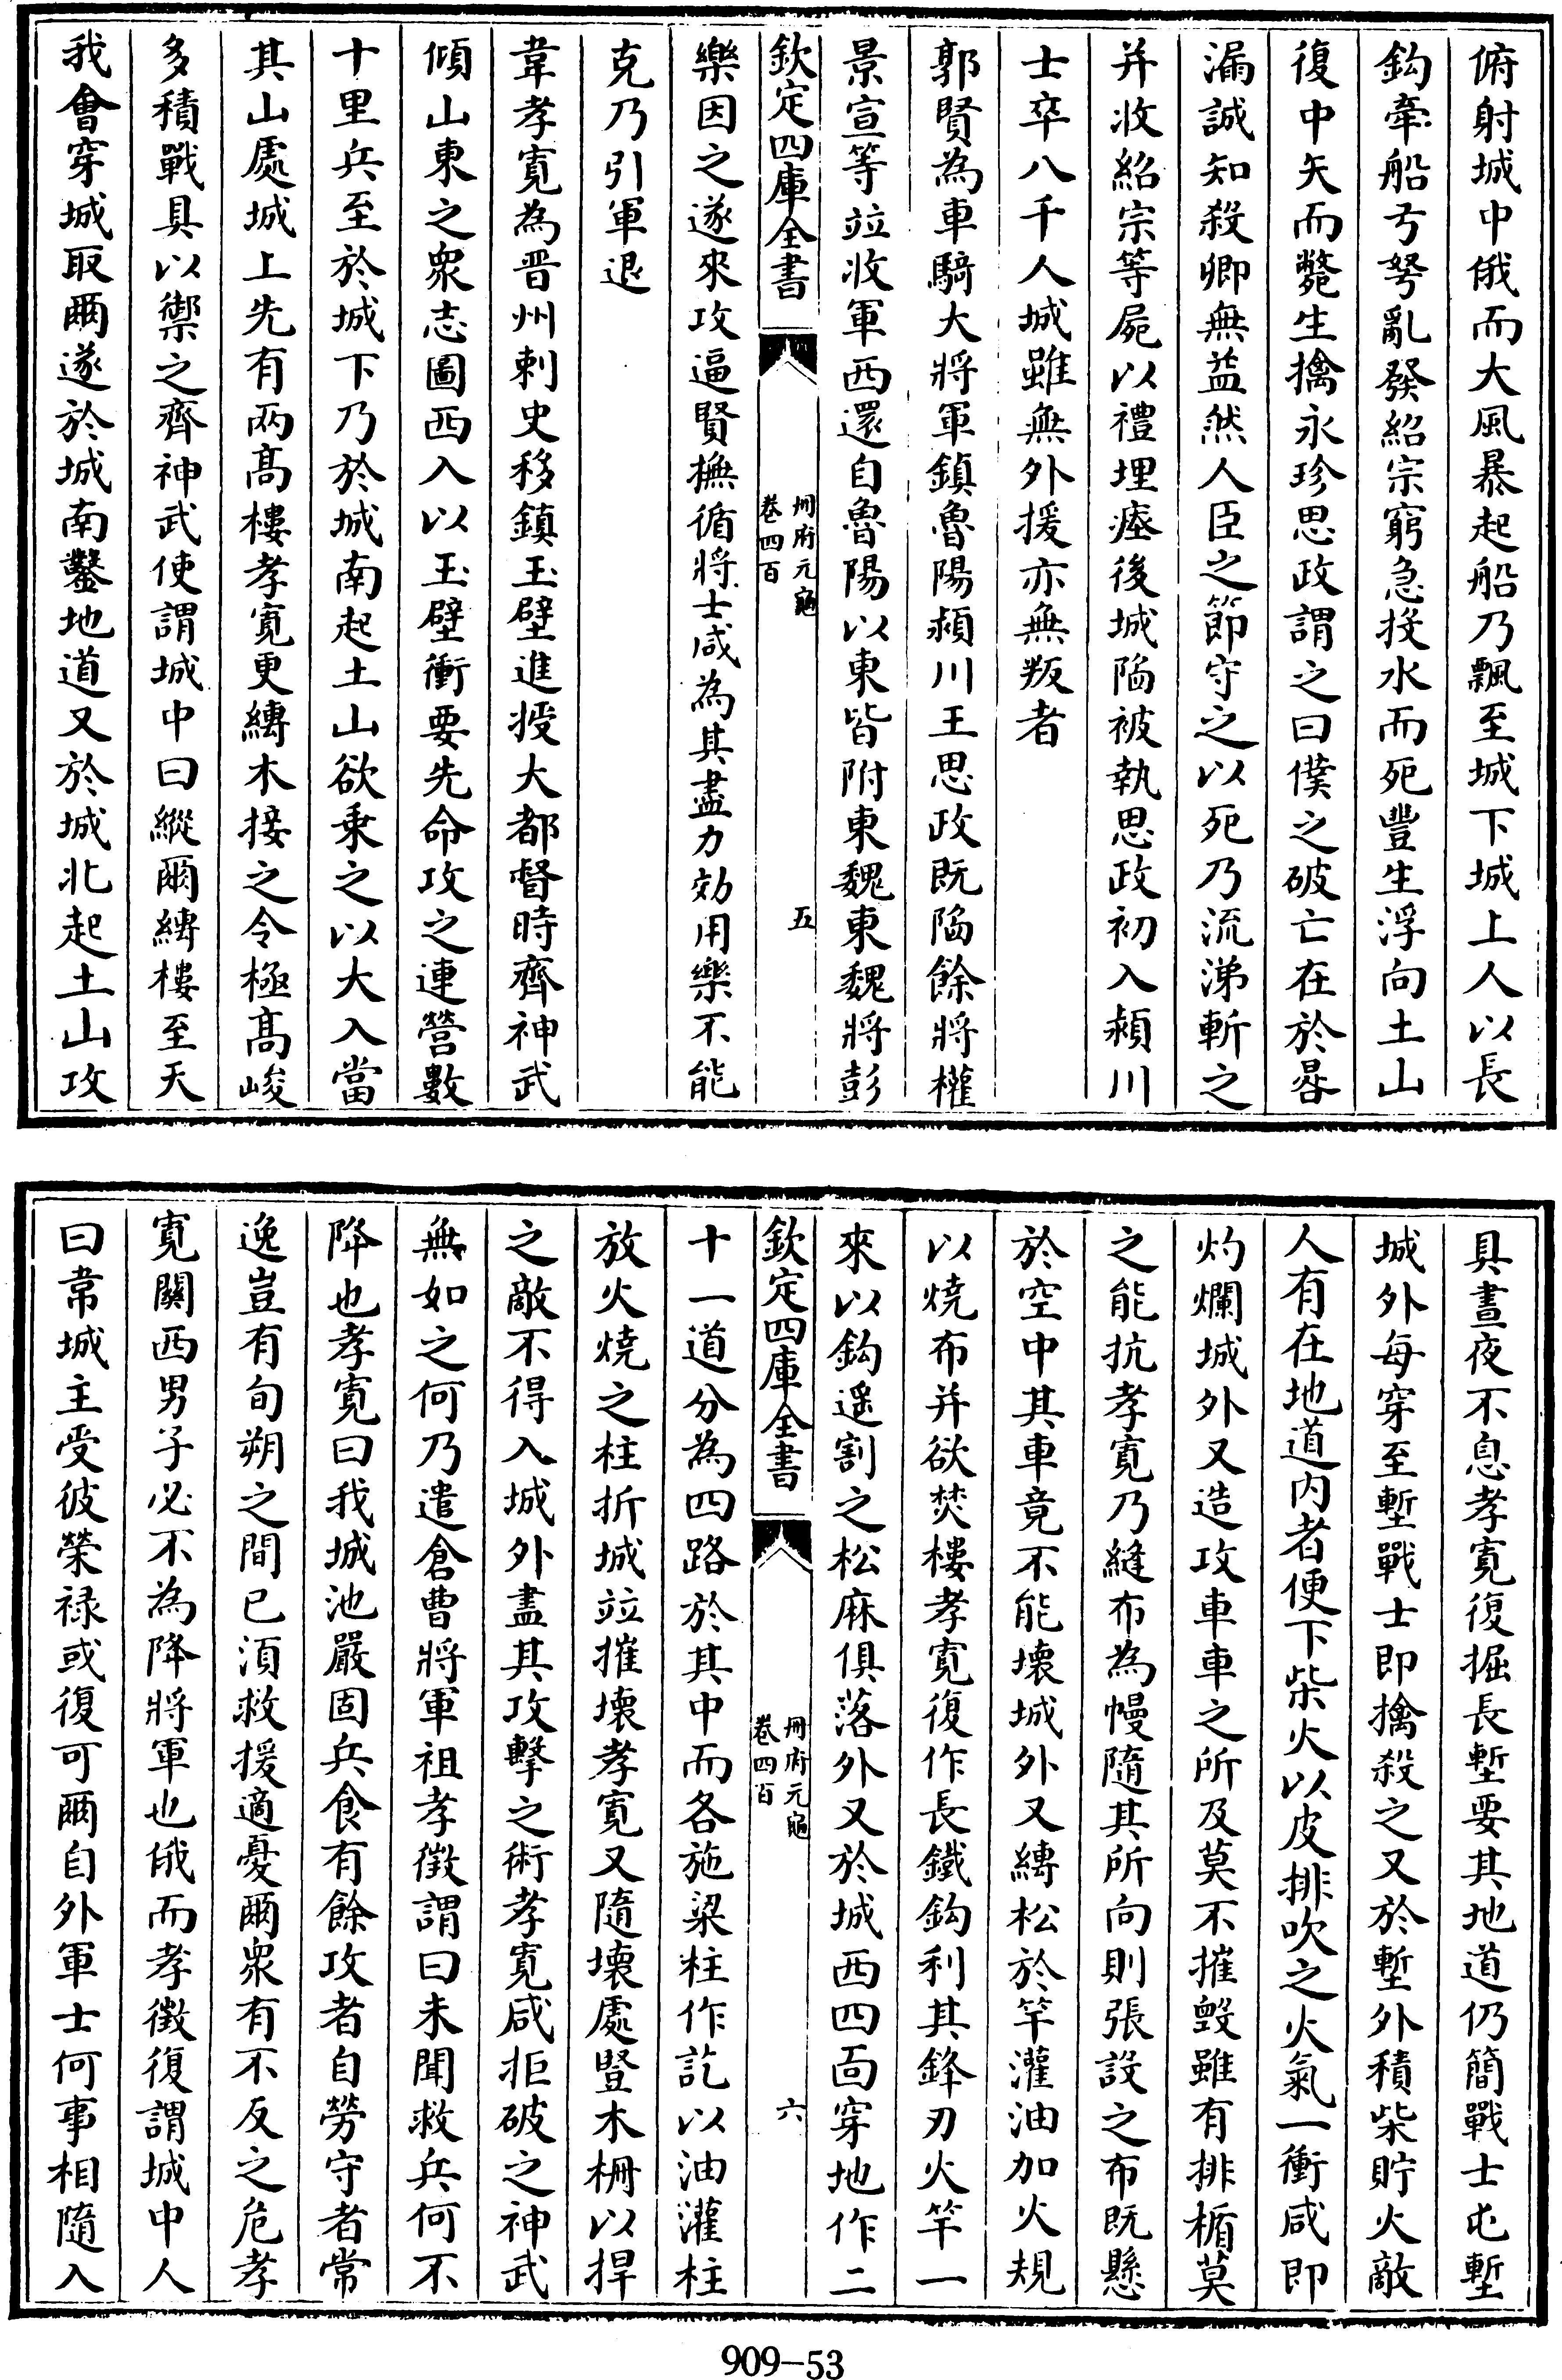 俯射城中俄而大風暴起船乃飄至城下城上人以長
鈎牽船弓弩亂發紹宗窮急投水而死豐生浮向土山
復中矢而斃生擒永珍思政謂之曰僕之破亡在於晷
漏誠知殺卿無益然人臣之節守之以死乃流涕斬之
并收紹宗等屍以禮埋瘞後城陷被執思政初入潁川
士卒八千人城雖無外援亦無叛者
郭賢為車騎大將軍鎮魯陽潁川王思政既陷餘將權
景宣等竝收軍西還自魯陽以東皆附東魏東魏將彭
欽定四庫全書
冊府元龜
卷四百
五
樂因之遂來攻逼賢撫循將士咸為其盡力効用樂不能
克乃引軍退
韋孝寛為晉州刺史移鎮玉壁進授大都督時齊神武
傾山東之衆志圖西入以玉壁衝要先命攻之連營數
十里兵至於城下乃於城南起土山欲乘之以大入當
其山處城上先有兩髙樓孝寛更縛木接之令極髙峻
多積戰具以禦之齊神武使謂城中曰縱爾縛樓至天
我會穿城取爾遂於城南鑿地道又於城北起土山攻
具晝夜不息孝寛復掘長塹要其地道仍簡戰士屯塹
城外每穿至塹戰士即擒殺之又於塹外積柴貯火敵
人有在地道内者便下柴火以皮排吹之火氣一衝咸即
灼爛城外又造攻車車之所及莫不摧毀雖有排楯莫
之能抗孝寛乃縫布為幔隨其所向則張設之布既懸
於空中其車竟不能壊城外又縛松於竿灌油加火規
以燒布并欲焚樓孝寛復作長鐵鈎利其鋒刃火竿一
來以鈎遥割之松麻俱落外又於城西四面穿地作二
欽定四庫全書
冊府元龜
卷四百
六
十一道分為四路於其中而各施梁柱作訖以油灌柱
放火燒之柱折城竝摧壊孝寛又隨壊處豎木柵以捍
之敵不得入城外盡其攻擊之術孝寛咸拒破之神武
無如之何乃遣倉曹將軍祖孝徴謂曰未聞救兵何不
降也孝寛曰我城池嚴固兵食有餘攻者自勞守者常
逸豈有旬朔之間已須救援適憂爾衆有不反之危孝
寛闗西男子必不為降將軍也俄而孝徴復謂城中人
曰韋城主受彼榮禄或復可爾自外軍士何事相隨入
909-53